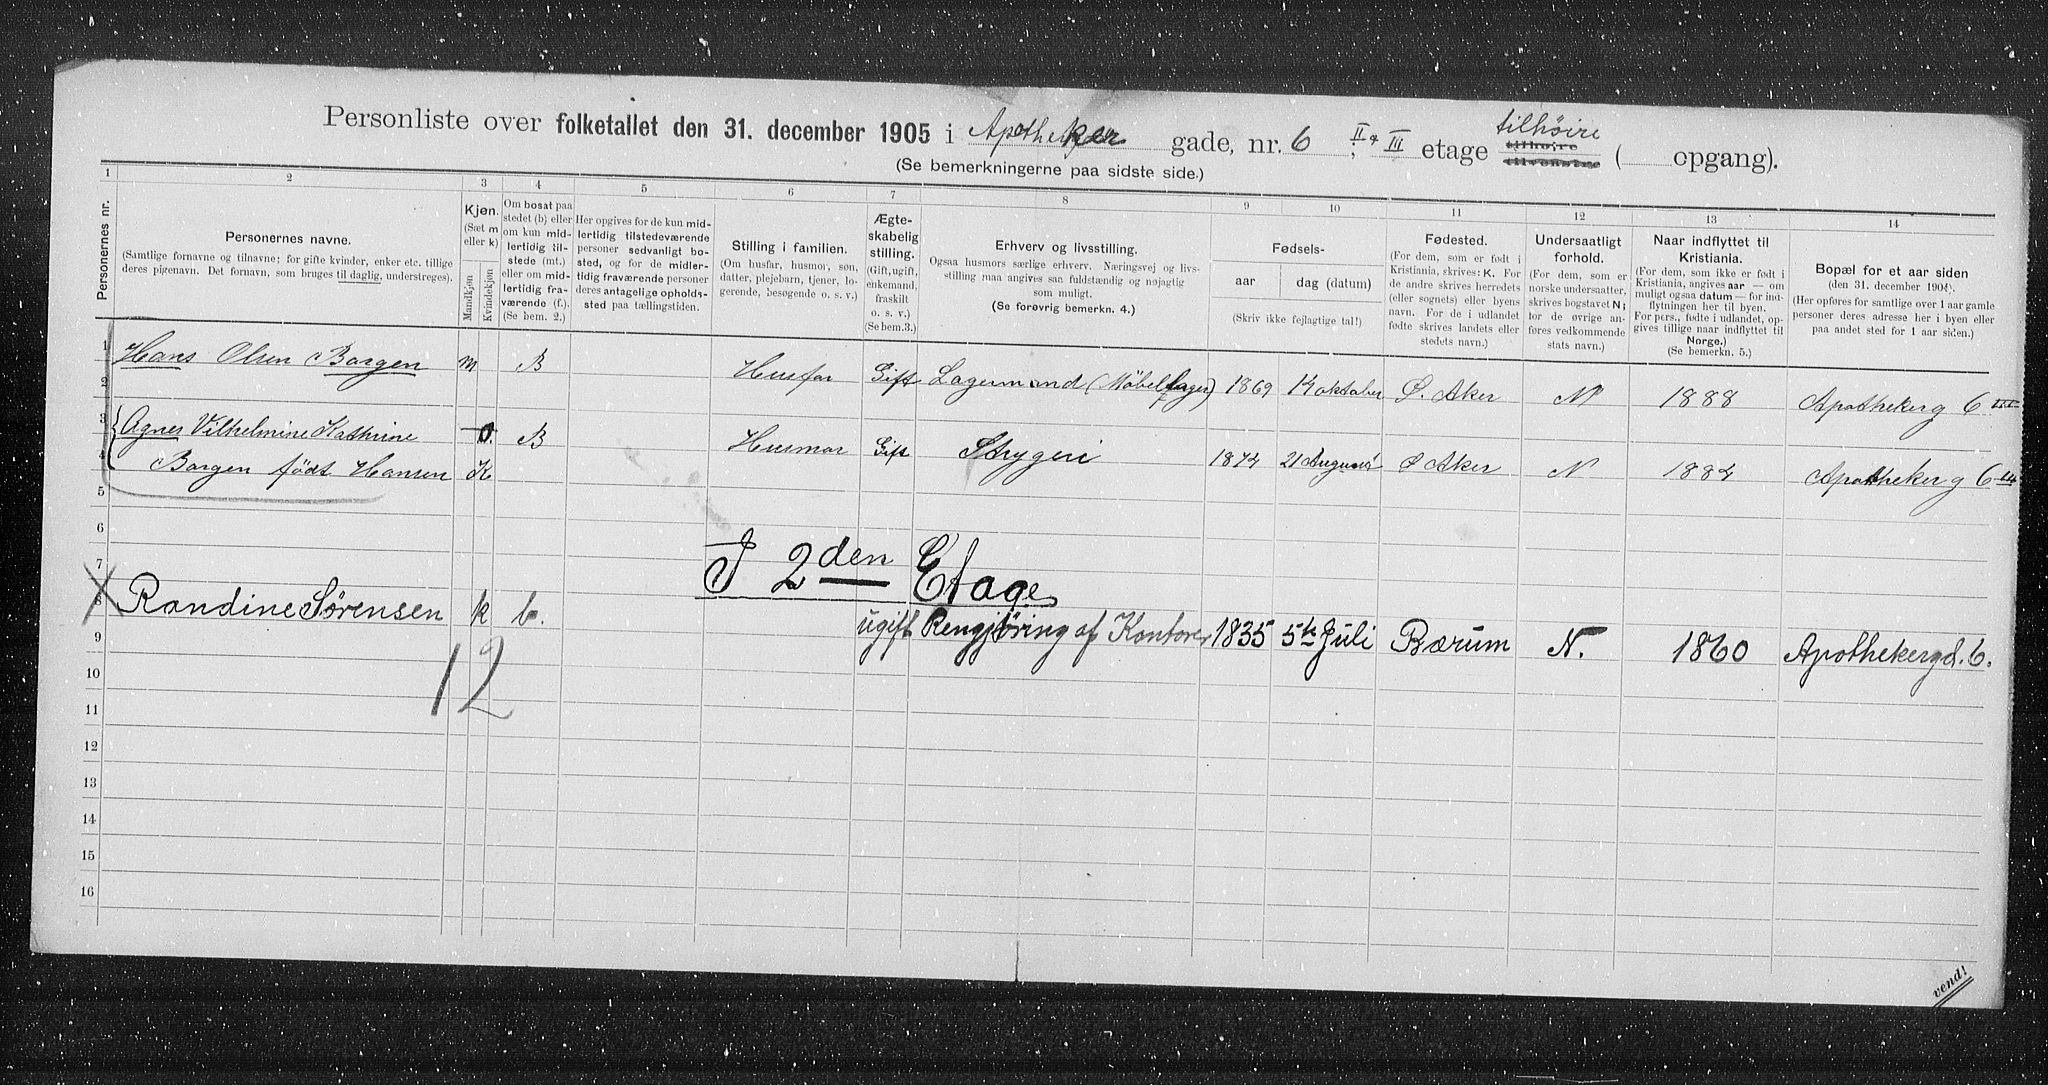 Personliste over folketallet den 31. december 1905 i Apotheker gade, nr. 6 II & III etage tilhøire ( opgang).
tilhøire
tilvenstre
(Se bemerkningerne paa sidste side.)
1 2 3 4 5 6 7 8 9 10 11 12 13 14
Personernes nr.
Personernes navne.
(Samtlige fornavne og tilnavne; for gifte kvinder, enker etc. tillige
deres pigenavn. Det fornavn, som bruges til daglig, understreges).
Kjøn.
(Sæt m
eller k)
Mandkjøn
Kvindekjøn.
Om bosat paa
stedet (b) eller
om kun mid-
lertidig til-
stede (mt.)
eller om mid-
lertidig fra-
værende (f.).
(Se bem. 2.)
Her opgives for de kun mid-
lertidig tilstedeværende
personer sedvanlig bo-
sted, og for de midler-
tidig fraværende personer
deres antagelige opholds-
sted paa tællingstiden.
Stilling i familien.
(Om husfar, husmor, søn,
datter, plejebarn, tjener, lo-
gerende, besøgende o. s. v.)
Ægte-
skabelig
stilling.
(Gift, ugift,
enkemand,
fraskilt
o. s. v.)
(Se bem.3.)
Erhverv og livsstilling.
Ogsaa husmors særlige erhverv. Næringsvej og livs-
stilling maa angives saa fuldstændig og nøjagtig
som muligt.
(Se forøvrig bemerkn. 4.)
Fødsels-
aar
dag (datum)
(Skriv ikke fejlagtige tal!)
Fødested.
(For dem, som er født i
Kristiania, skrives: K. For
de andre skrives herredets
(eller sognets) eller byens
navn. For de i udlandet
fødte skrives landets eller
stedets navn.)
Undersaatligt
forhold.
(For dem, som er
norske undersaatter,
skrives bogstavet N;
for de øvrige an-
føres vedkommende
stats navn.)
Naar indflyttet til
Kristiania.
(For dem, som ikke er født i
Kristiania, angives aar — om
muligt ogsaa datum — for ind-
flytningen her til byen.
For pers., fødte i udlandet, op-
gives tillige naar indflyttet til
Norge.)
(Se bemerkn. 5.)
Bopæl for et aar siden
(den 31. december 1904).
(Her opføres for samtlige over 1 aar gamle
personer deres adresse her i byen eller
paa andet sted for 1 aar siden.)
1
Hans Olsen Borgen m B Husfar Gift Lagermand (Møbellager) 1869 14 oktober Ø. Aker N 1888 Apotheker g 6 III
2
3
Agnes Vilhelmine Kathrine B Husmor Gift Strygeri 1874 21 August Ø Aker N 1884 Apotheker g 6 III
4
Borgen født Hansen K
5
6
7
I 2den Etage
8
Randine Sørensen k b. ugift Rengjøring af Kontorer 1835 5te Juli Bærum N. 1860 Apothekergd. 6.
9
12
10
11
12
13
14
15
16
vend!